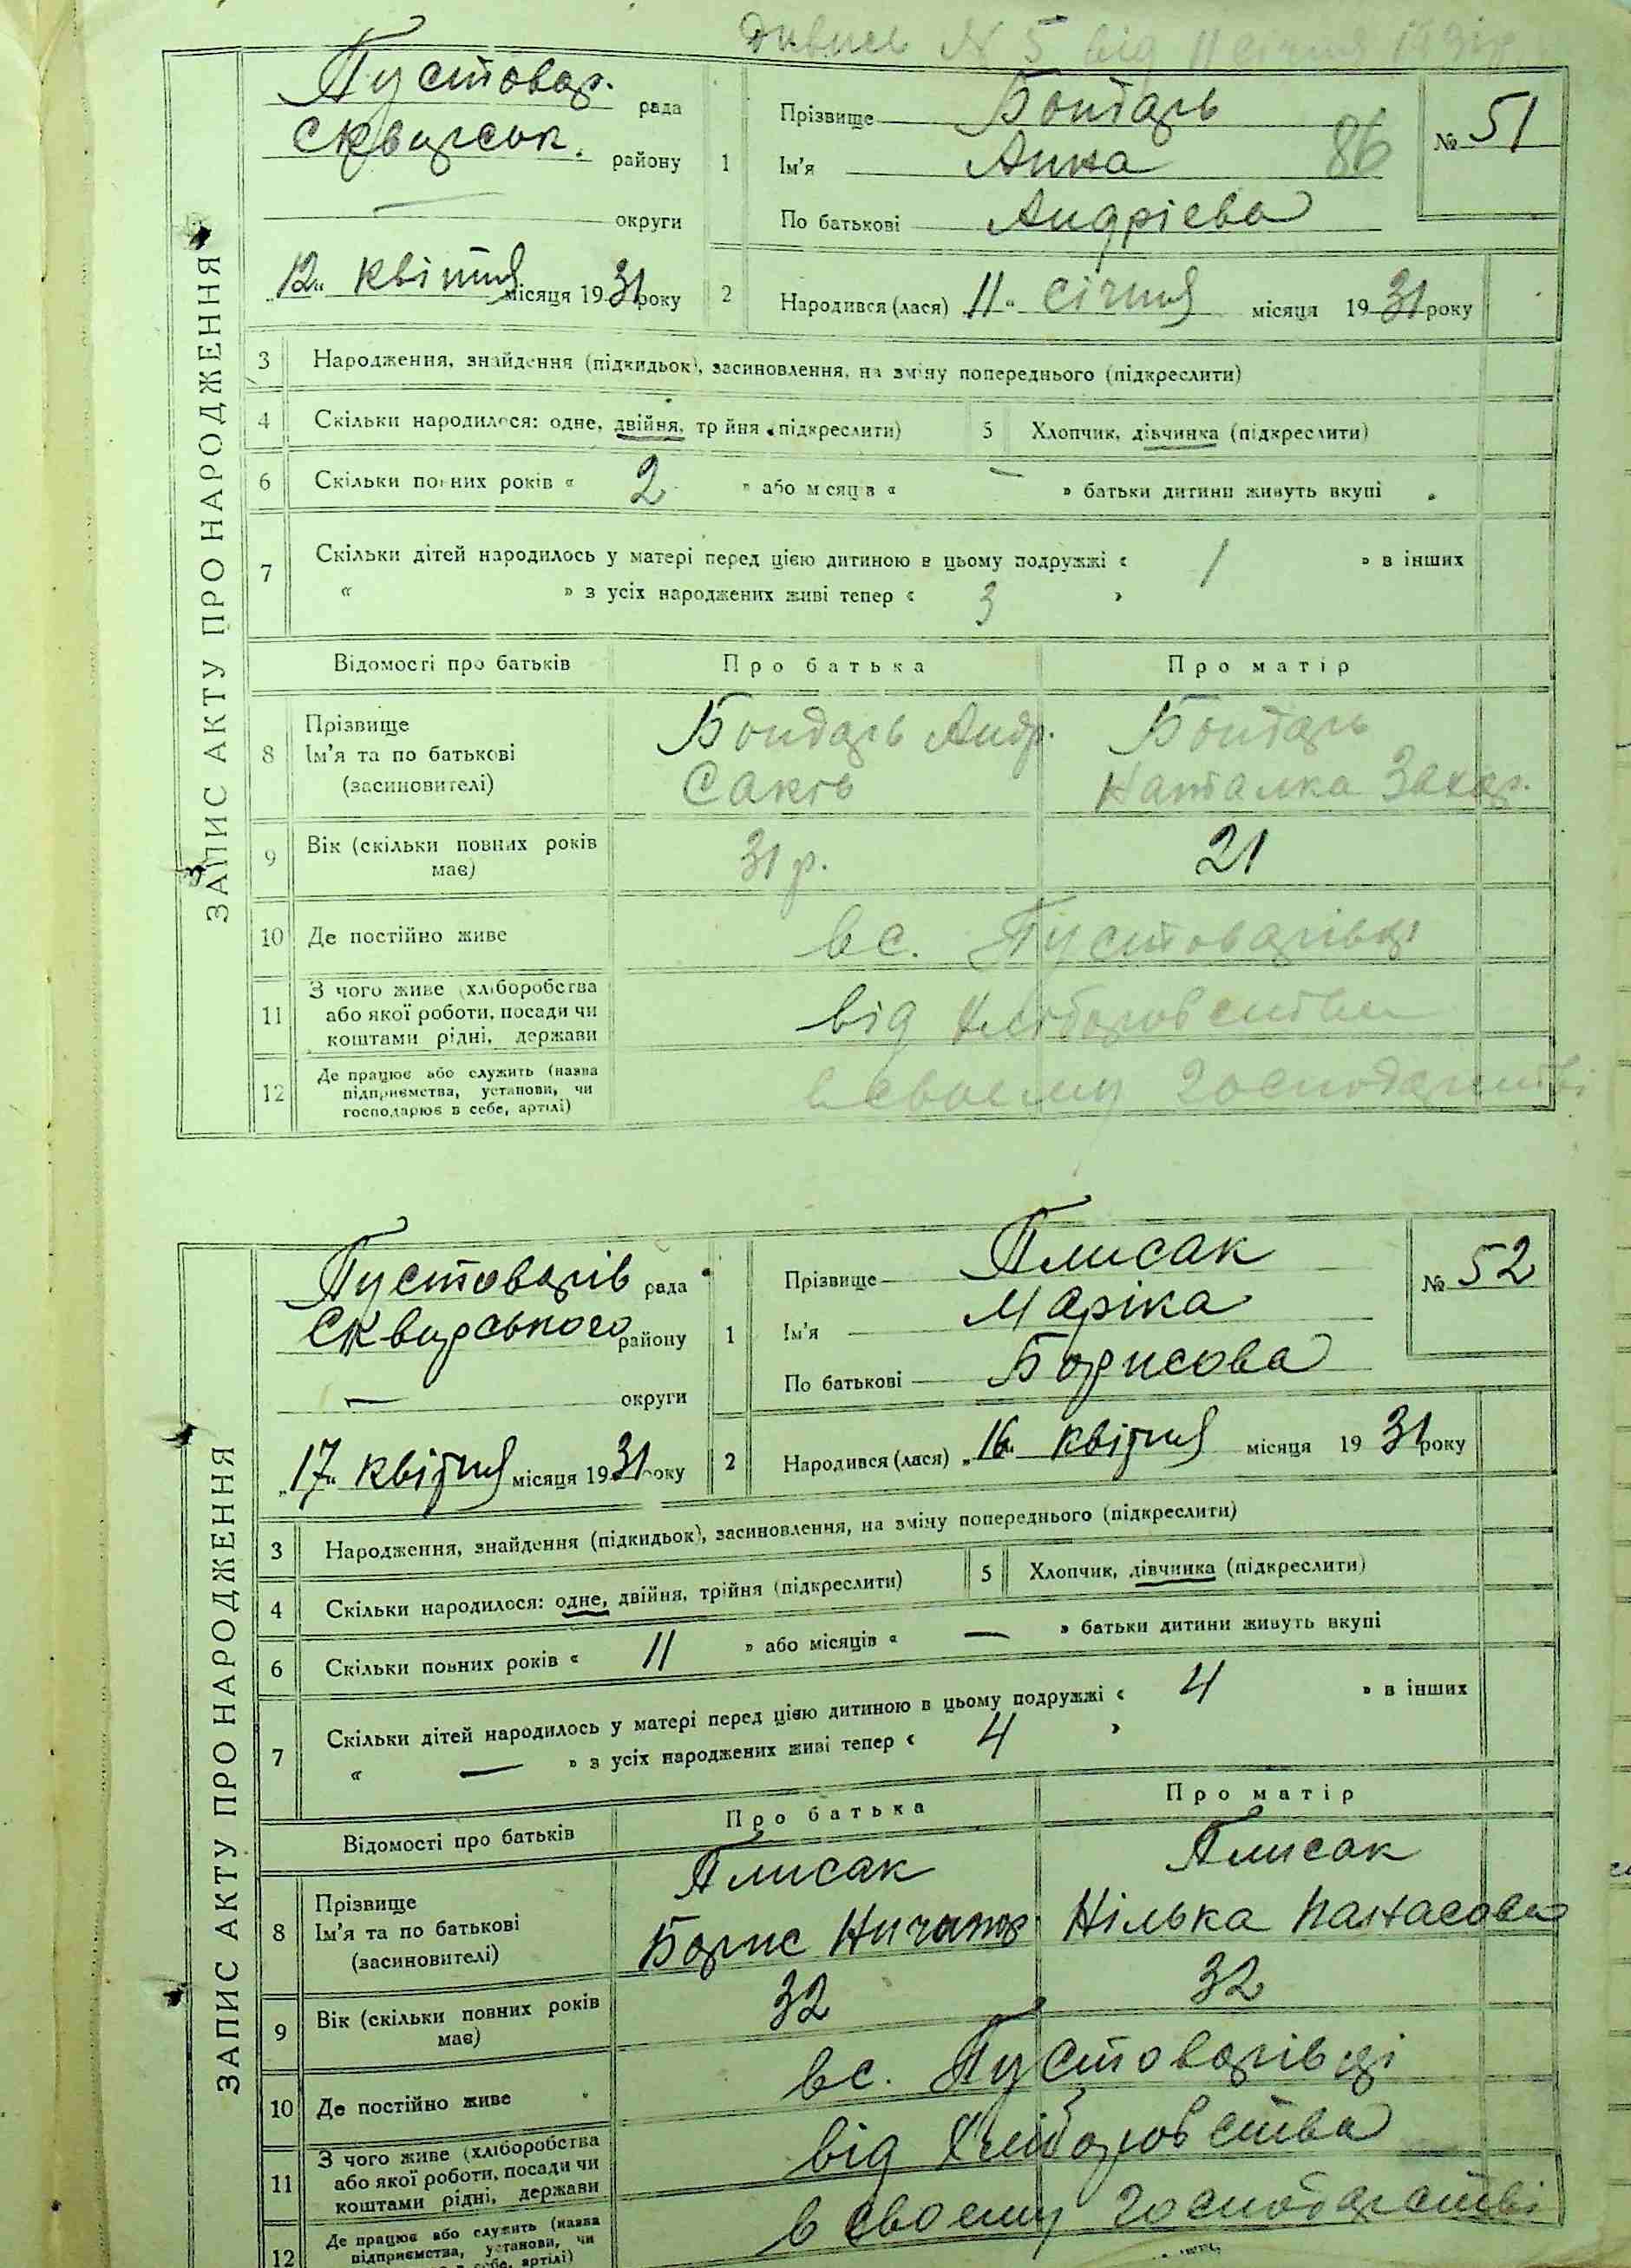 Дивись № 5 від 11 січня 1931р
ЗАПИС АКТУ ПРО НАРОДЖЕННЯ
Пустовар. рада
Сквирськ. району
— округи
„12“ квітня місяця 1931 року
1 Прізвище Бондарь
Ім'я Анна 86
По батькові Андрієва
№ 51
2 Народився (лася) 11“ січня місяця 1931 року
3 Народження, знайдення (підкидьок), засиновлення, на зміну попереднього (підкреслити)
4 Скільки народилося: одне, двійня, трійня (підкреслити) 5 Хлопчик, дівчинка (підкреслити)
6 Скільки повних років « 2 » або місяців « — » батьки дитини живуть вкупі
7 Скільки дітей народилось у матері перед цією дитиною в цьому подружжі « 1 » в інших
« » з усіх народжених живі тепер « 3 »
Відомості про батьків Про батька Про матір
8 Прізвище Ім'я та по батькові (засиновителі) Бондарь Андр. Бондарь
Наталка Захар.
9 Вік (скільки повних років має) 31 р. 21
10 Де постійно живе в с. Пустоварівці
11 З чого живе (хліборобства або якої роботи, посади чи коштами рідні, держави від хліборобства
12 Де працює або служить (назва підприємства, установи, чи господарює в себе, артілі) в своєму господарстві
ЗАПИС АКТУ ПРО НАРОДЖЕННЯ
Пустоварів рада
Сквирського району
— округи
„17“ квітня місяця 1931 року
1 Прізвище Плисак
Ім'я Маріка
По батькові Борисова
№ 52
2 Народився (лася) „16“ квітня місяця 1931 року
3 Народження, знайдення (підкидьок), засиновлення, на зміну попереднього (підкреслити)
4 Скільки народилося: одне, двійня, трійня (підкреслити) 5 Хлопчик, дівчинка (підкреслити)
6 Скільки повних років « 11 » або місяців « — » батьки дитини живуть вкупі
7 Скільки дітей народилось у матері перед цією дитиною в цьому подружжі « 4 » в інших
« — » з усіх народжених живі тепер « 4 »
Відомості про батьків Про батька Про матір
8 Прізвище Ім'я та по батькові (засиновителі) Плисак Плисак
Борис Нілька Панасова
9 Вік (скільки повних років має) 32 32
10 Де постійно живе в с. Пустоварівці
11 З чого живе (хліборобства або якої роботи, посади чи коштами рідні, держави від хліборобства
12 Де працює або служить (назва підприємства, установи, чи в себе, артілі) в своєму господарстві